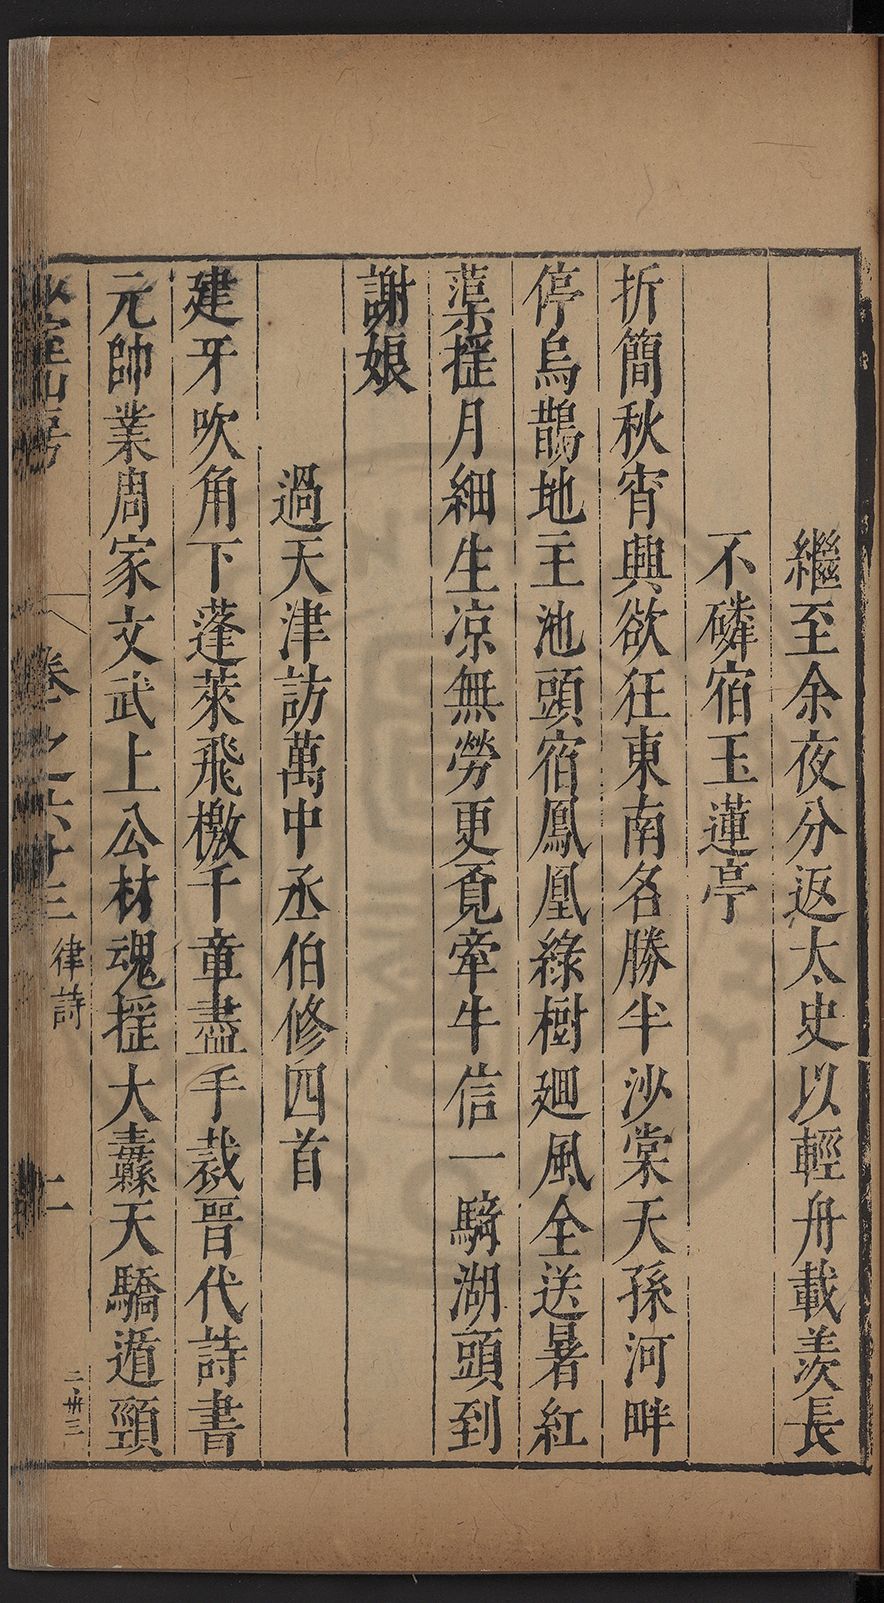 繼至余夜分返太史以輕舟載羨長
不磷宿玉蓮亭
折簡秋宵興欲狂東南名勝半沙棠天孫河畔
停烏鵲地主池頭宿鳳凰綠樹廻風全送暑紅
蕖搖月細生凉無勞更覓牽牛信一騎湖頭到
謝娘
過天津訪萬中丞伯修四首
建牙吹角下蓬萊飛檄千章盡手裁晉代詩書
元帥業周家文武上公材魂搖大纛天驕遁頸
卷之六十三 律詩 二